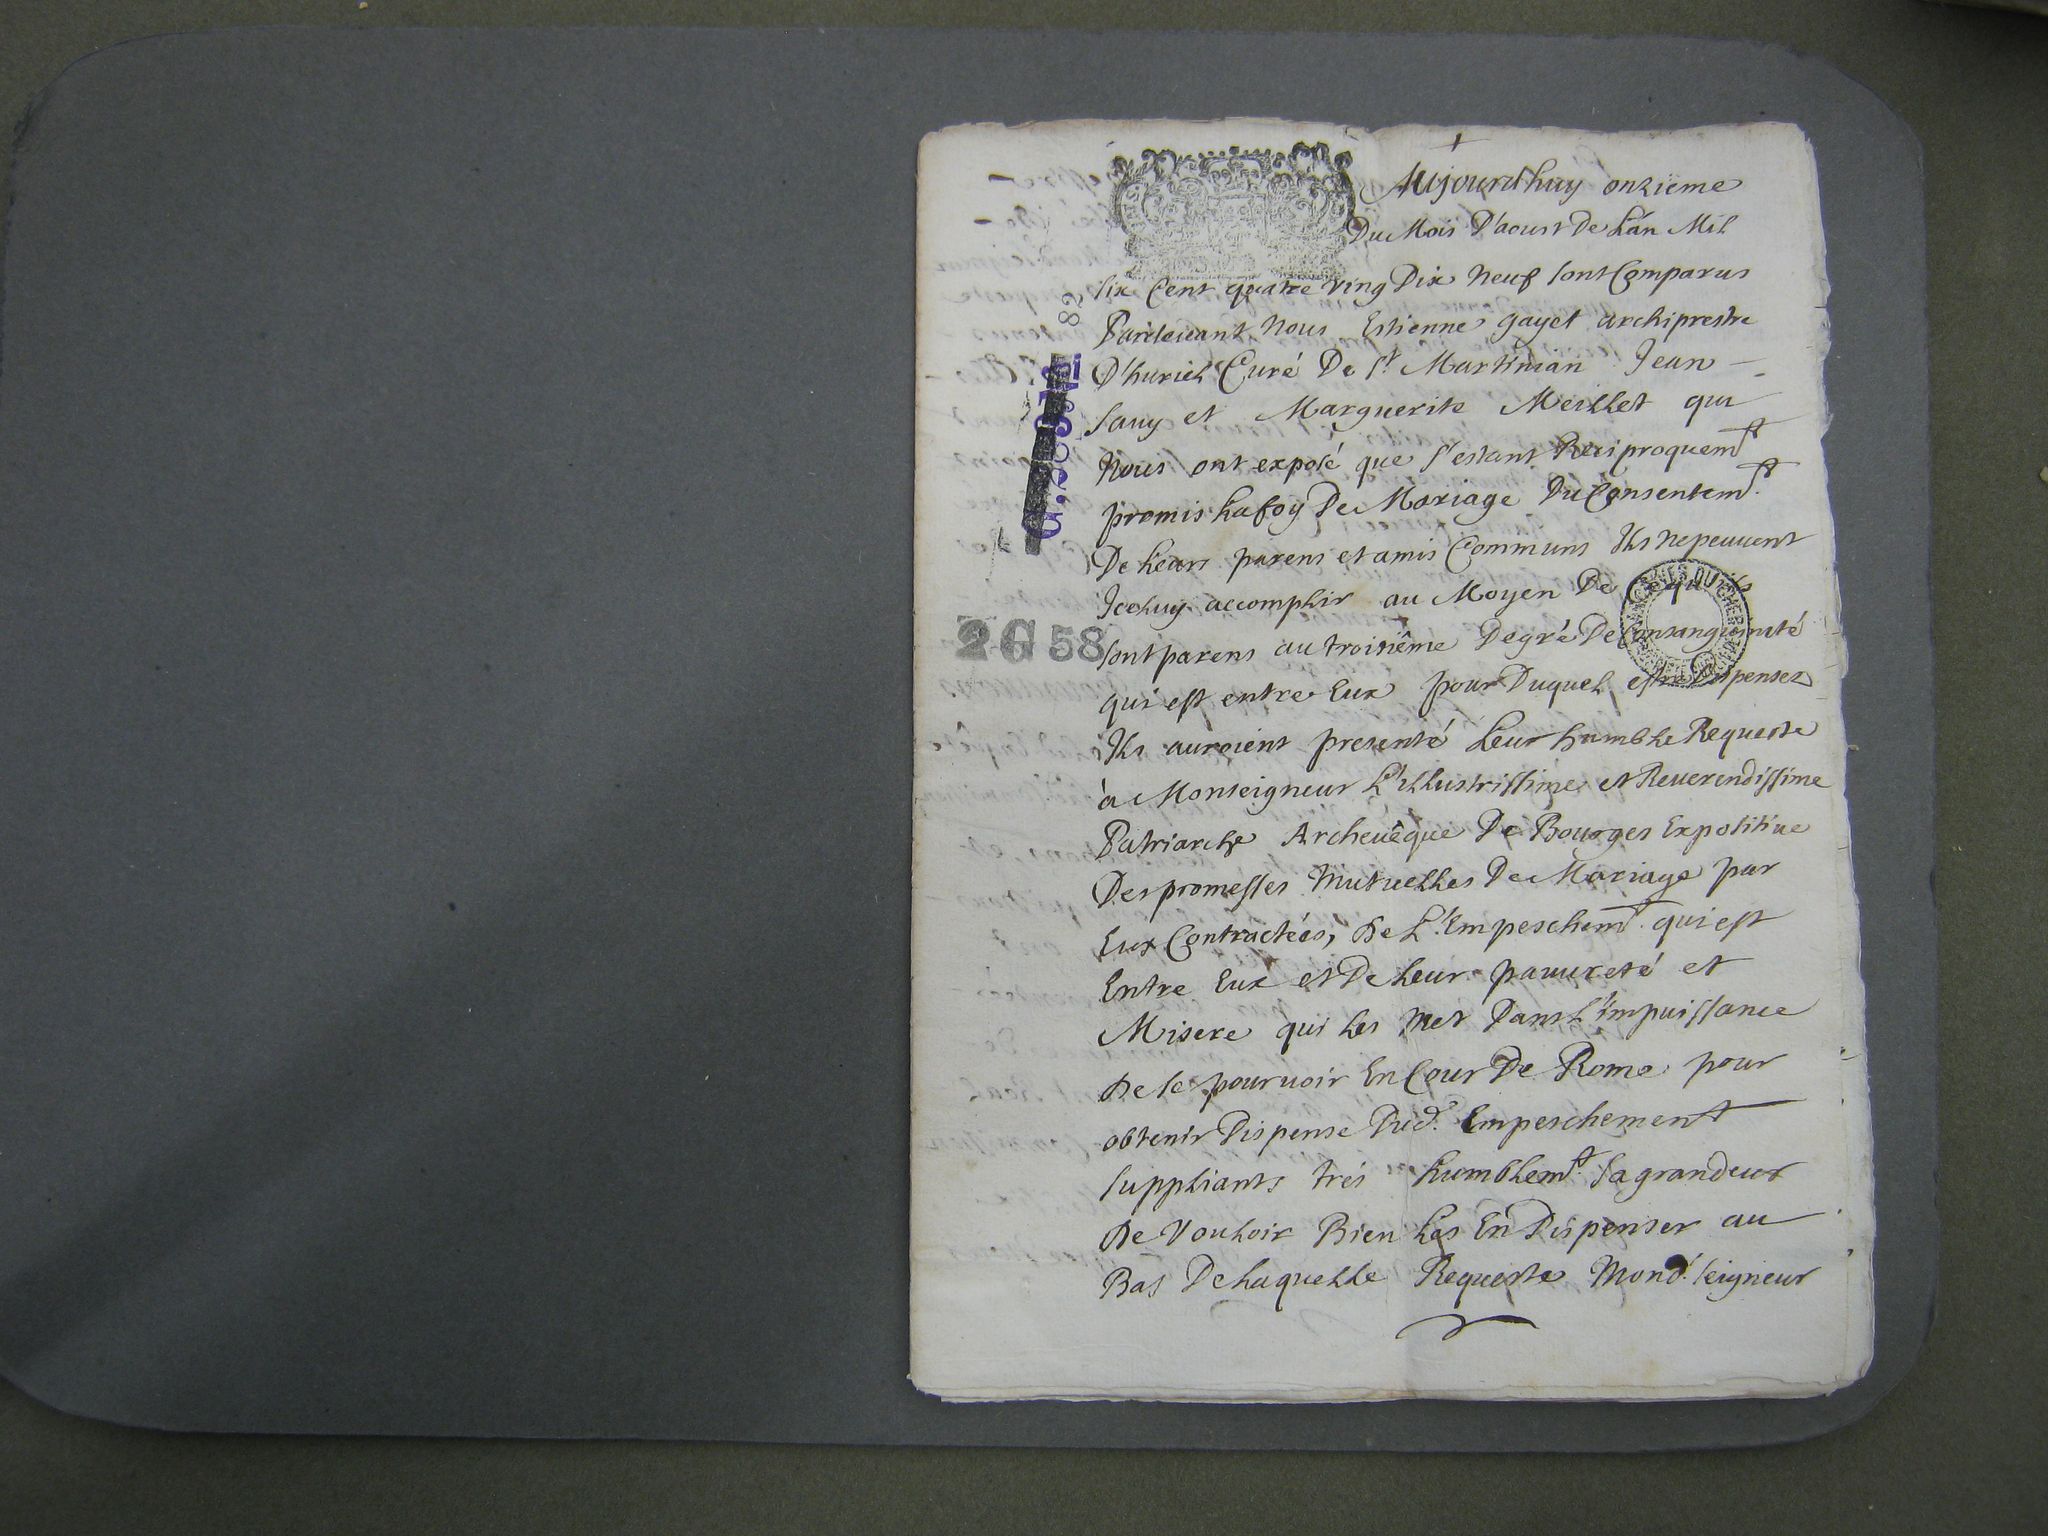 Aujourdhuy onzieme
Du Mois D'aoust De L'an Mil
six Cent quatre ving Dix Neuf sont Comparus
Pardevant Nous Estienne gayet archiprestre
D'huriel Curé De St. Martinian Jean
Sauy et Marguerite Meillet qui
Nous ont exposé que s'estant Reciproquemt
promis La foy De Mariage Du Consentemt.
De Leurs parens et amis Communs Ils ne peuuent
Iceluy accomplir au Moyen De Ce quils
sont parens au troisiême Degré De Consanguinité
2G 58
qui est entre Eux pour Duquel estre Dispensez
Ils auroient presenté Leur humble Requeste
à Monseigneur L'illustrissime et Reuerendissime
Patriarche Archeuêque De Bourges Expositiue
Des promesses Mutuelles De Mariage par
Eux Contractées, De L'Empeschemt. qui est
Entre Eux et De Leur pauureté et
Misere qui Les Met Dans L'impuissance
De se pouruoir En Cour De Rome pour
obtenir Dispense Dud. Empeschement
suppliants trés humblemt. sa grandeur
De Vouloir Bien Les En Dispenser au
Bas De Laquelle Requeste Mond. seigneur
82